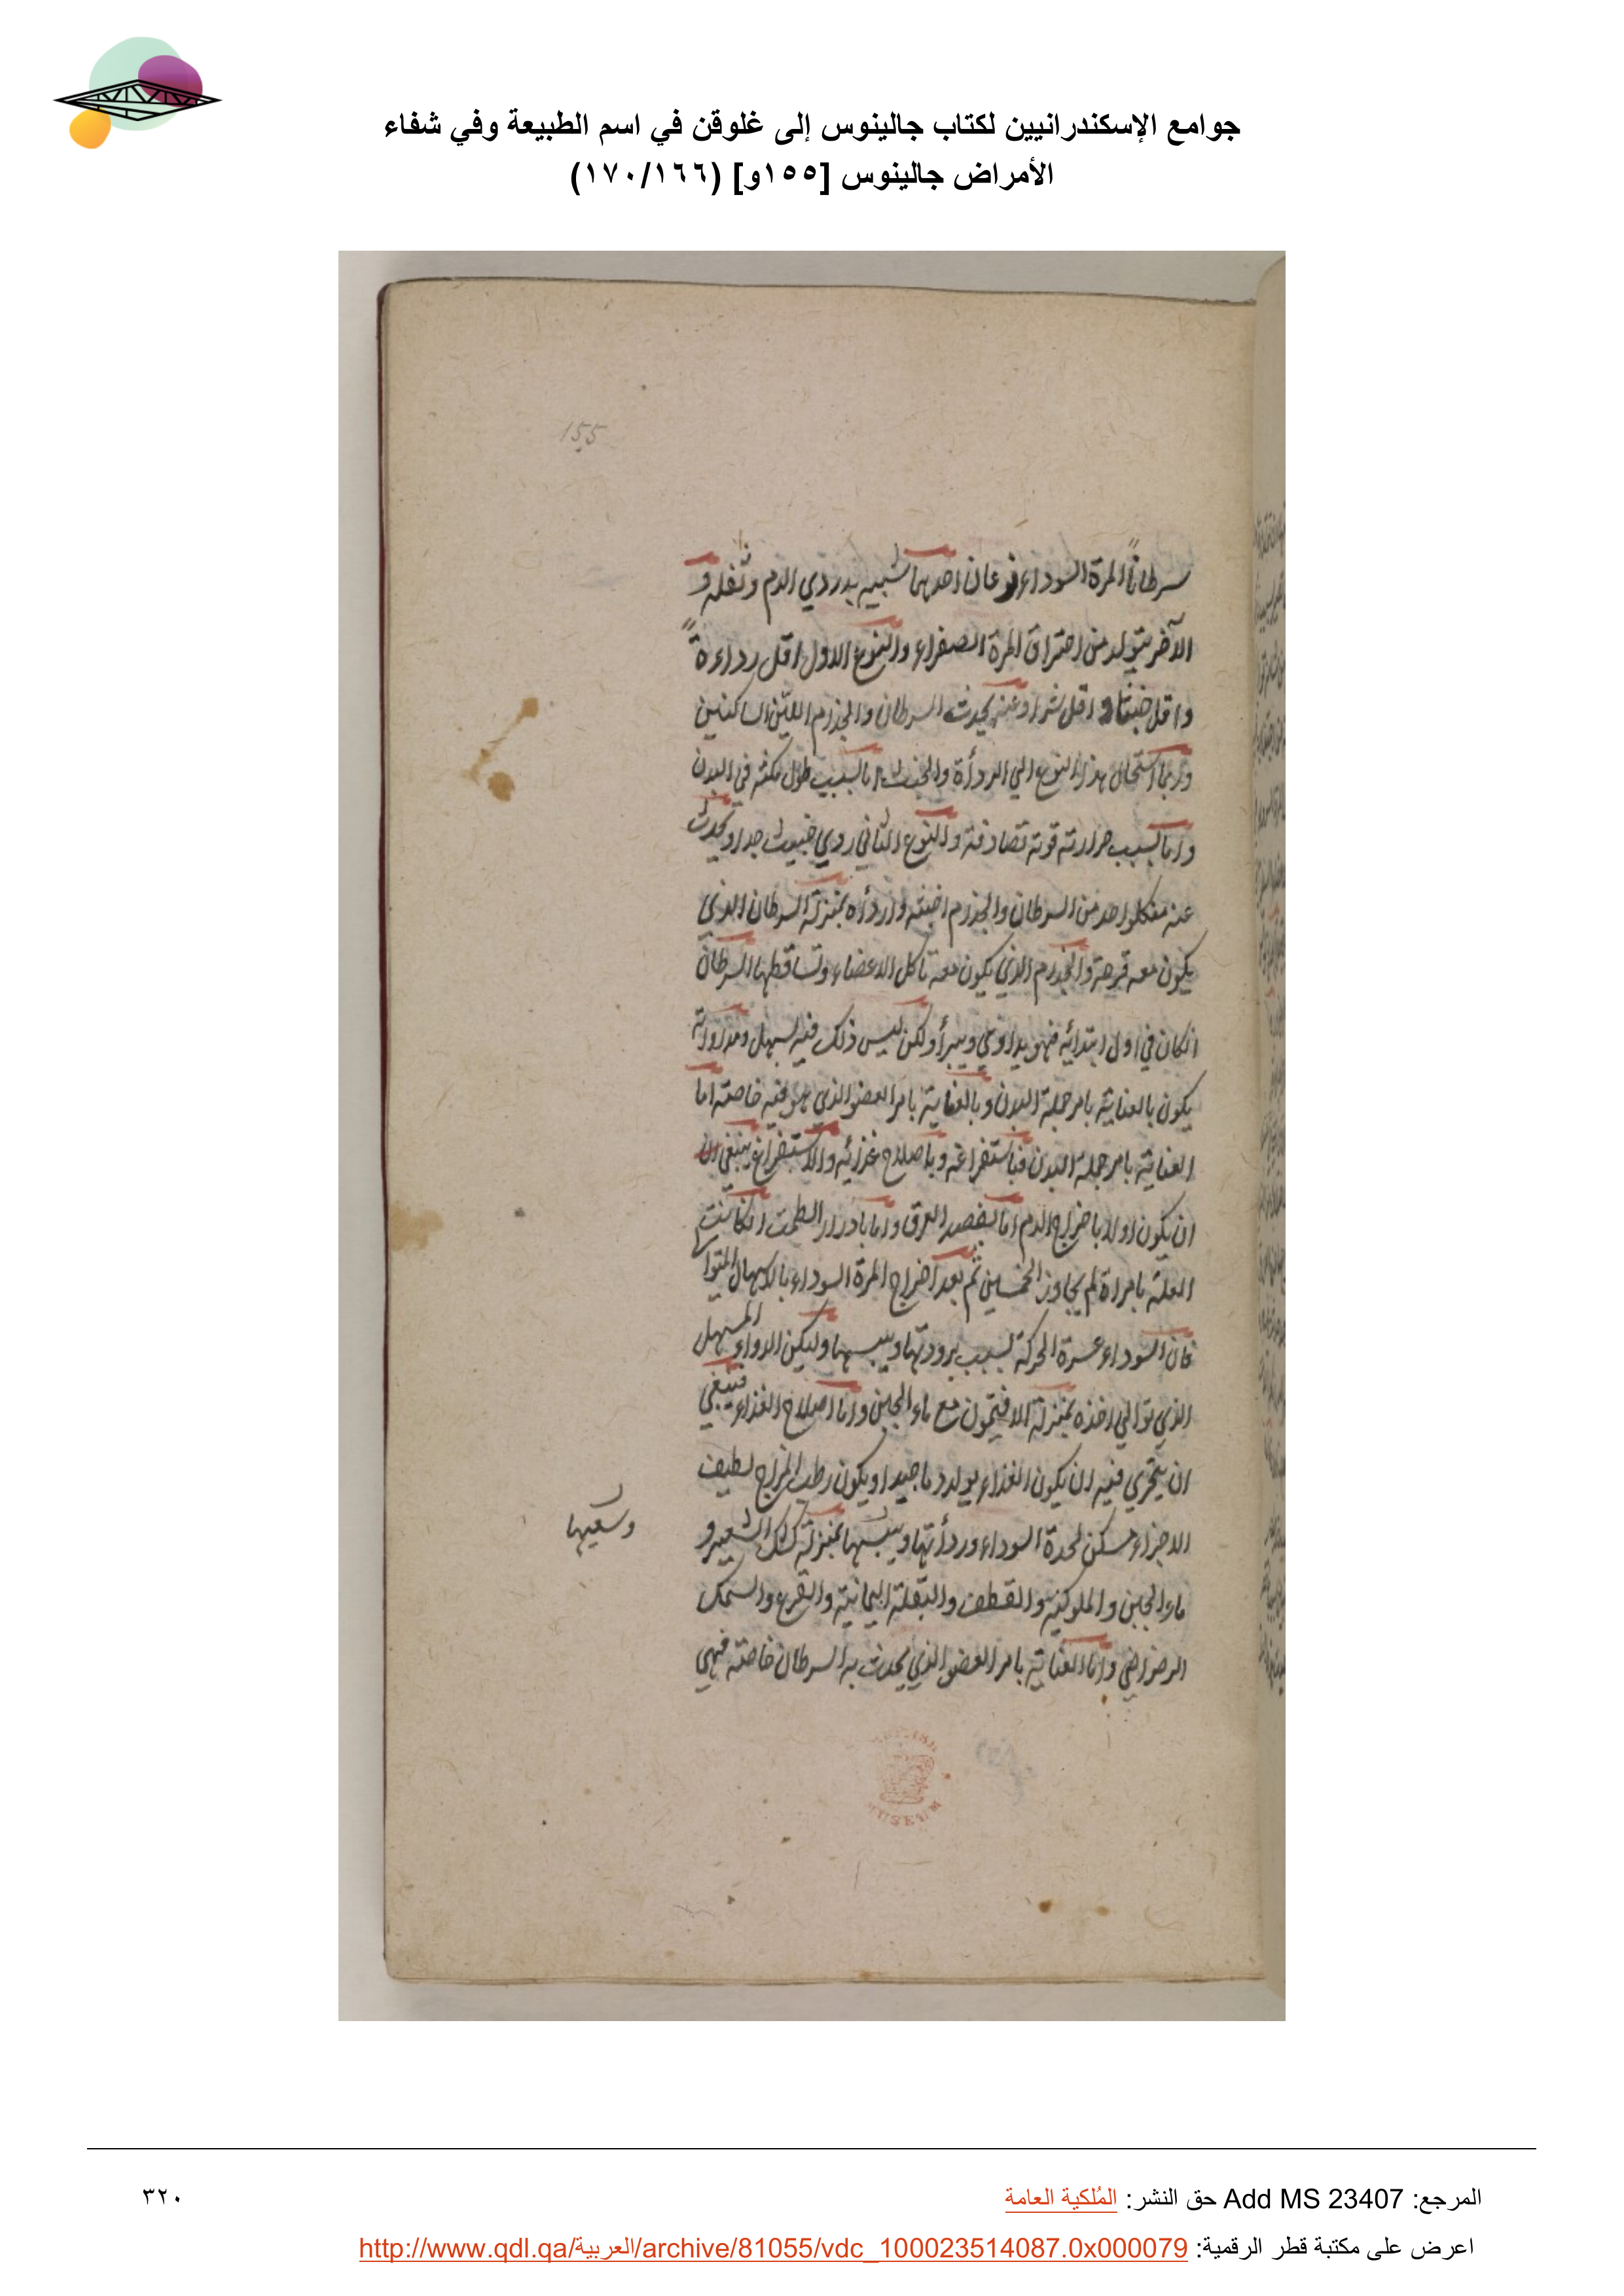 جوامع الإسكندرانيين لكتاب جالينوس إلى غلوقن في اسم الطبيعة وفي شفاء
الأمراض جالينوس [١٥٥و] (١٧٠/١٦٦)
155
سرطاناً المرة السوداء نوعان احدهما شبيه بدردي الدم وثفله و
الآخر يتولد من احتراق المرة الصفراء والنوع الاول اقل رداءةً
واقل خبثا واقل شرا وعنه يحدث السرطان والجذام اللذين الساكنين
وربما استحال هذا النوع الي الردأة والخبث اما بسبب طول مكثه في البدن
واما بسبب حرارته قوته تصادفه والنوع الثاني ردي خبيث جدا ويحدث
عنه من كل واحد من السرطان والجذام اخبثه واردأه بمنزلة السرطان الذي
يكون معه قرحة والجذام الذي يكون معه تاكل الاعضاء وتساقطها السرطان
انكان في اول ابتدائه فهو يداوي ويبرأ ولكن ليس ذلك فيه بسهل ومداواته
يكون بالعناية بامر جملة البدن وبالعناية بامر العضو الذي هو فيه خاصة اما
العناية بامر جملة البدن فباستفراغه وباصلاح غذائه والاستفراغ ينبغي ان
ان يكون اولا باخراج الدم اما بفصد العرق واما بادرار الطمث انكانت
العلة بامراة لم يجاوز الخمسين ثم بعد اخراج المرة السوداء بالاسهال المتوالي
فان السوداء عسرة الحركة بسبب برودتها ويبسها وليكن الدواء المسهل
الذي توالي اخذه بمنزلة الافيتمون مع ماء الجبن واما اصلاح الغذاء فينبغي
ان يتحري فيه ان يكون الغذاء يولد دما جيدا ويكون رطب المزاج لطيف
الاجزاء مسكن لحدة السوداء وردأتها ويبسها بمنزلة كشك الشعير و
ماء الجبن والملوكية والقطف والبقلة اليمانية والقرع والسمك
الرضراضي واما العناية بامر العضو الذي يحدث به السرطان خاصة فهي
المرجع: Add MS 23407 حق النشر: المُلكية العامة
٣٢٠
اعرض على مكتبة قطر الرقمية: http://www.qdl.qa/العربية/archive/81055/vdc_100023514087.0x000079